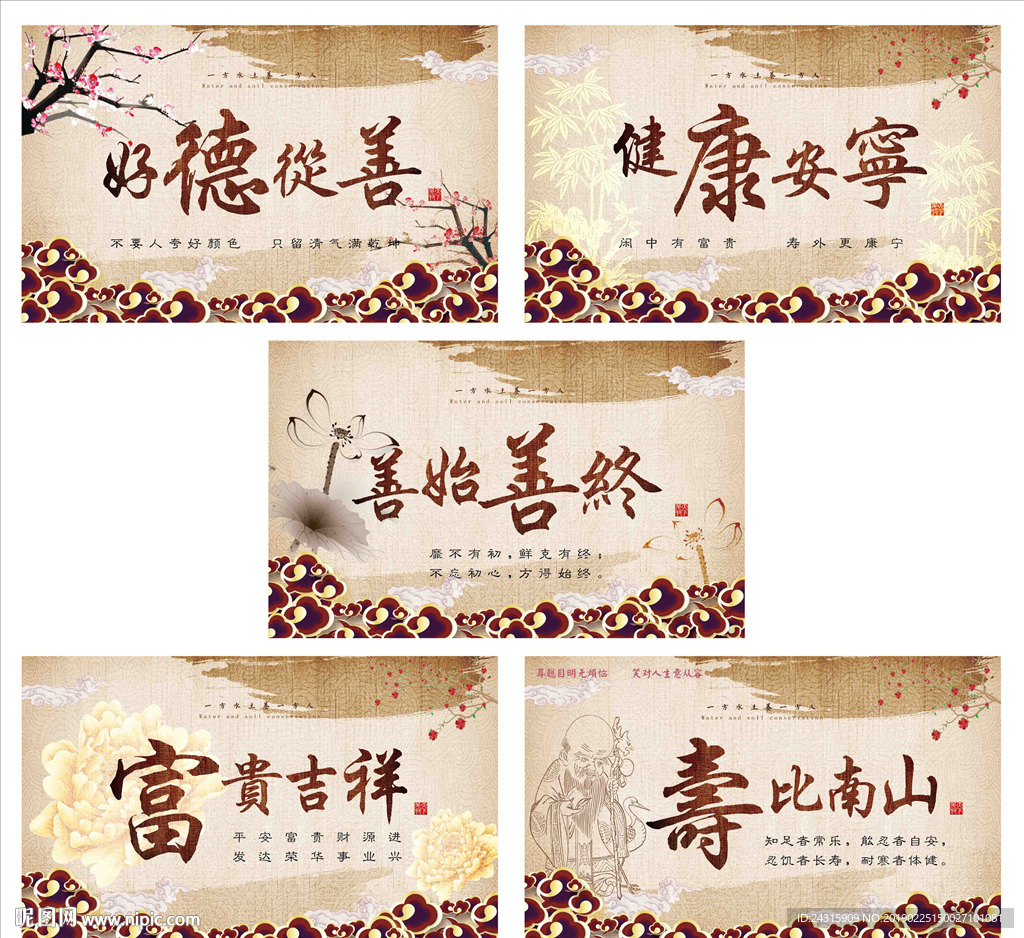 一方水土养一方人
Water and soil conservation
好德從善
不要人夸好颜色 只留清气满乾坤
一方水土养一方人
Water and soil conservation
健康安寧
闲中有富贵 寿外更康宁
一方水土养一方人
Water and soil conservation
善始善終
靡不有初，鲜克有终；
不忘初心，方得始终。
一方水土养一方人
Water and soil conservation
富貴吉祥
平安富贵财源进
发达荣华事业兴
耳聪目明无烦恼 笑对人生意从容
一方水土养一方人
Water and soil conservation
壽比南山
知足者常乐，能忍者自安，
忍饥者长寿，耐寒者体健。
昵图网 www.nipic.com
ID:24315909 NO:20190225150027101081